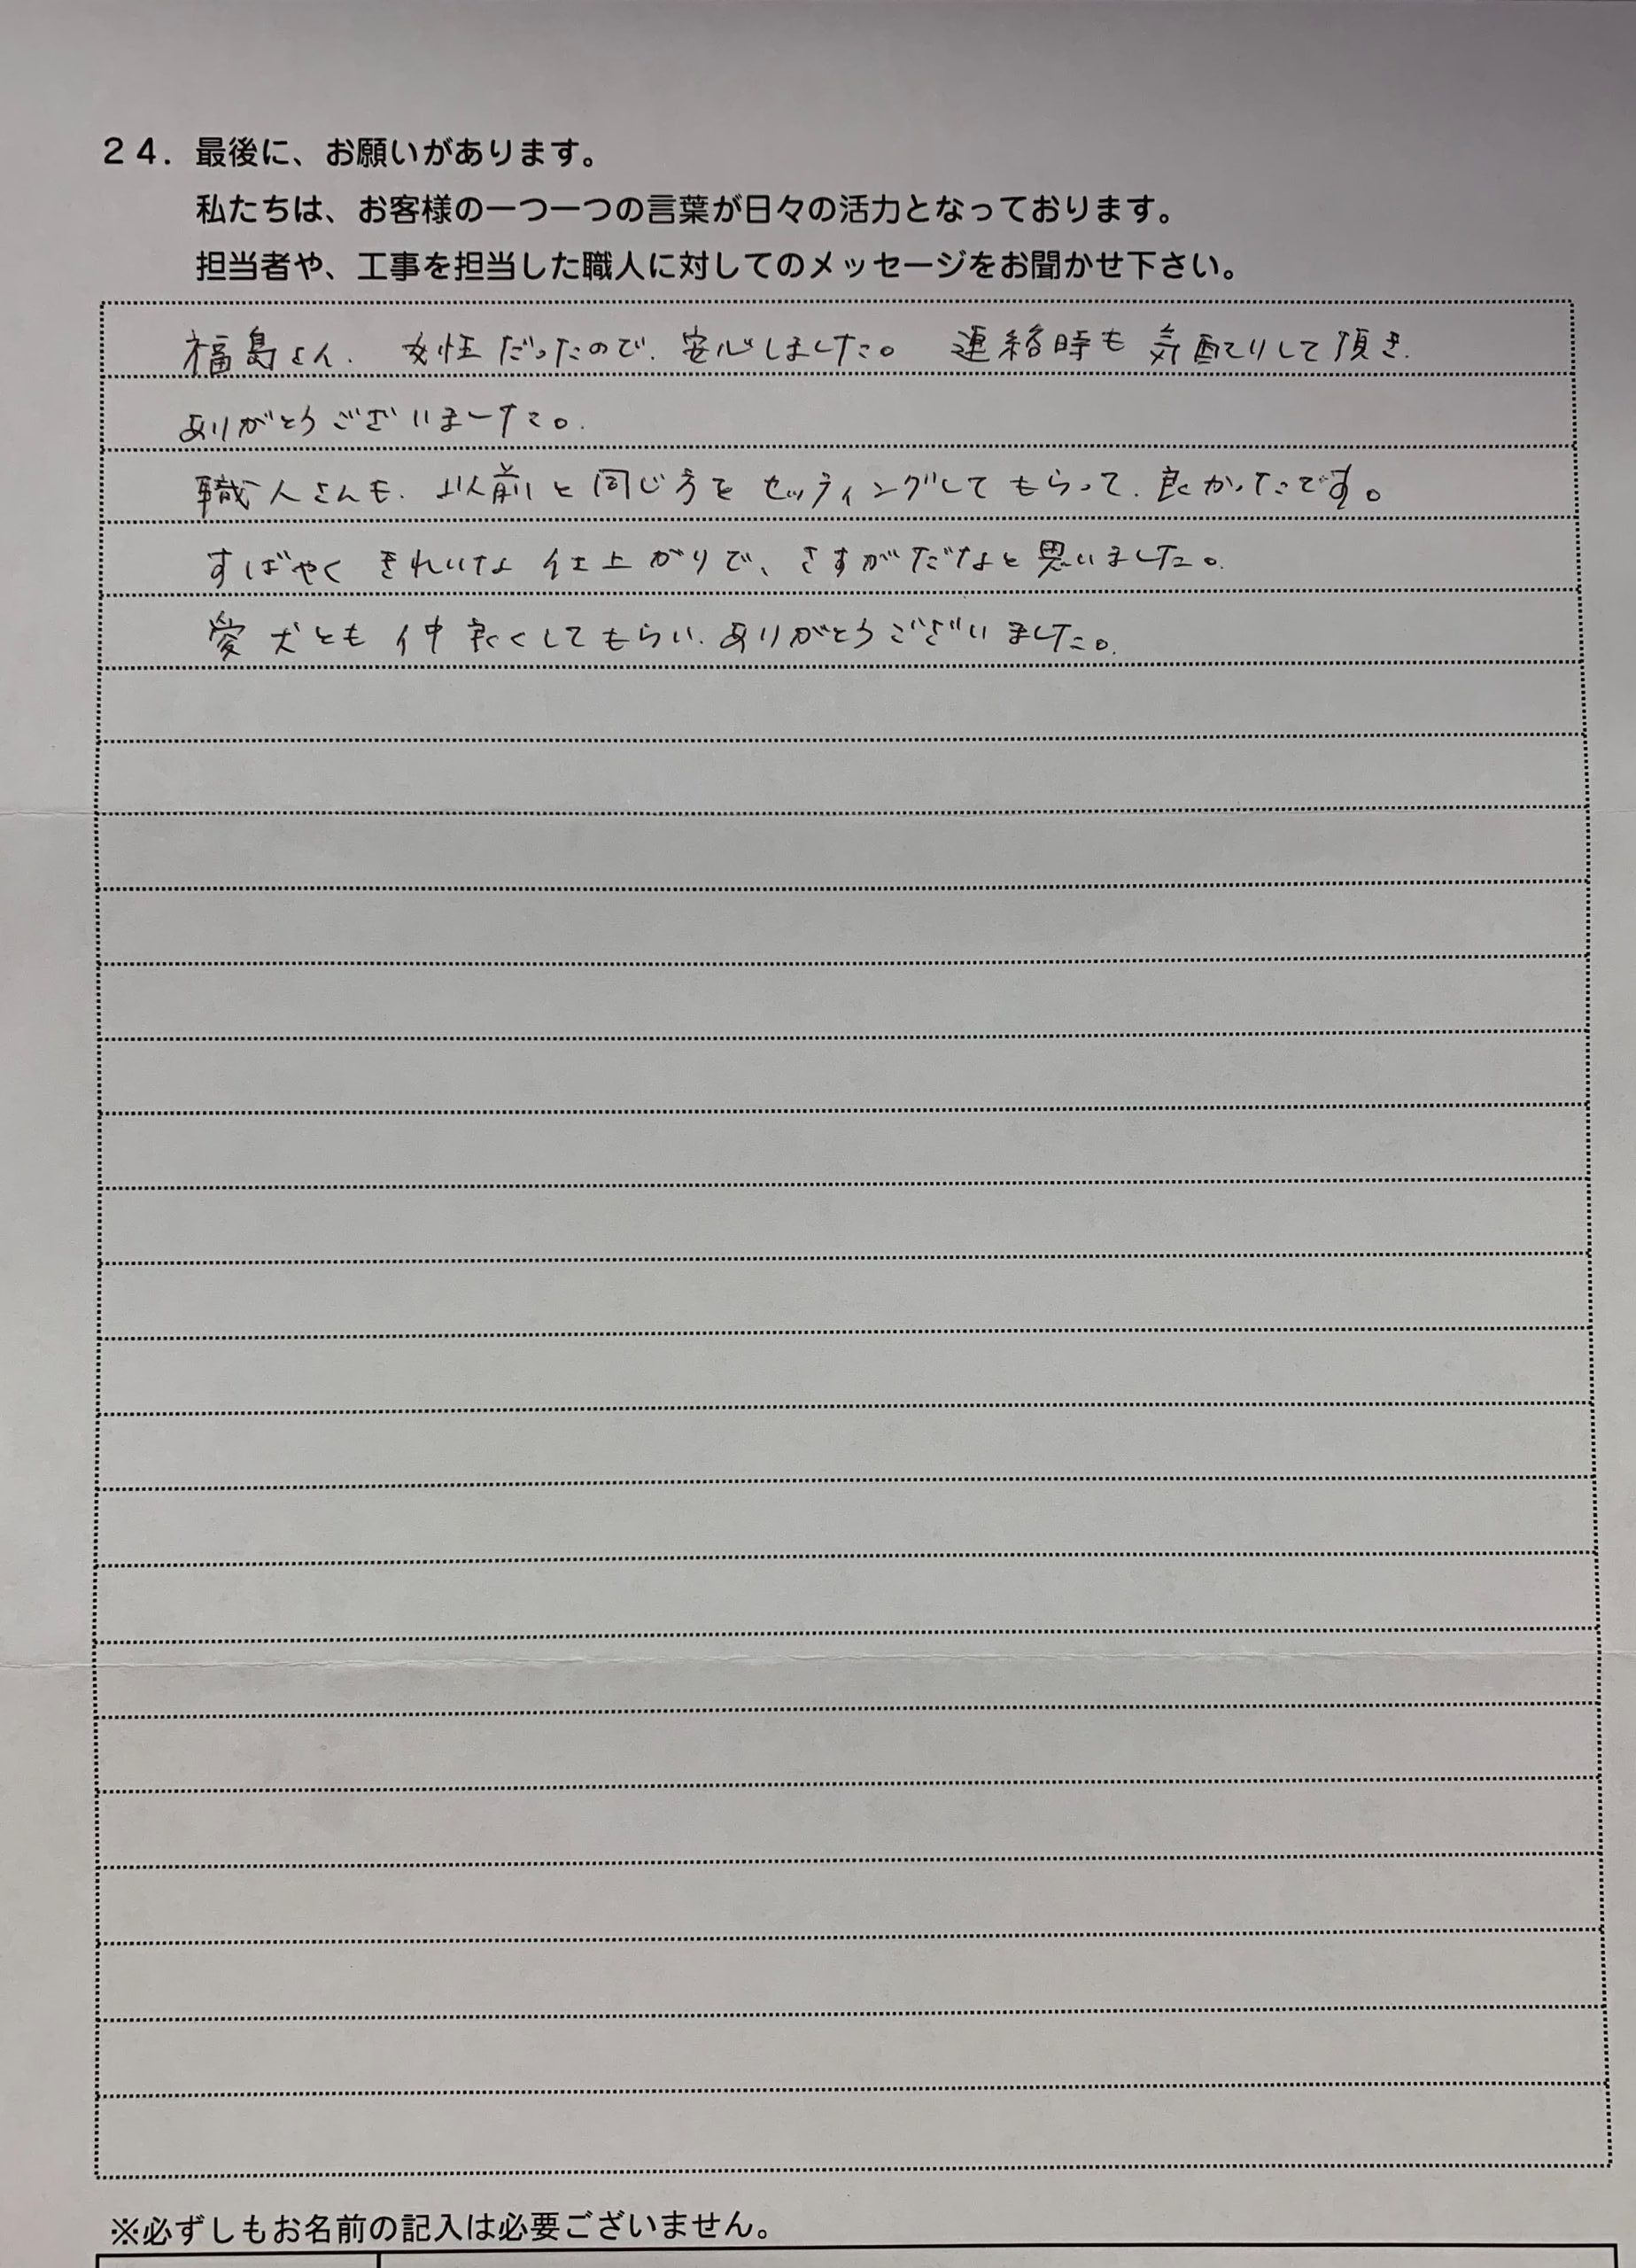 ２４．最後に、お願いがあります。
私たちは、お客様の一つ一つの言葉が日々の活力となっております。
担当者や、工事を担当した職人に対してのメッセージをお聞かせ下さい。
福島さん、女性だったので、安心しました。連絡時も気配りして頂き、
ありがとうございました。
職人さんも、以前と同じ方をセッティングしてもらって、良かったです。
すばやくきれいな仕上がりで、さすがだなと思いました。
愛犬とも仲良くしてもらい、ありがとうございました。
※必ずしもお名前の記入は必要ございません。